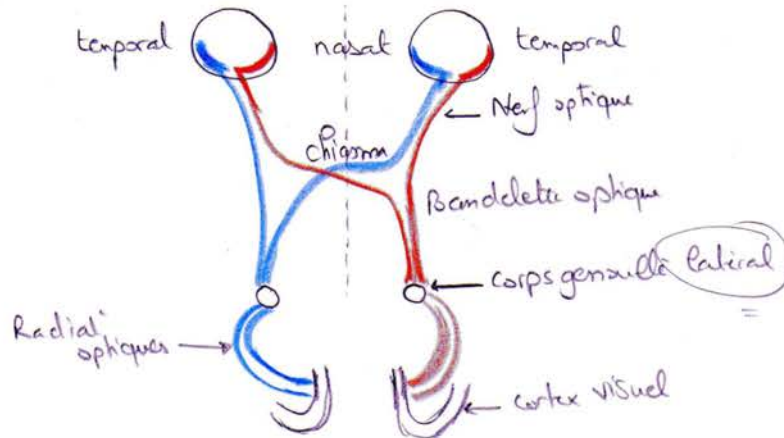 temporal
nasal
temporal
Nerf optique
Chiasma
Bandelette optique
corps genouillé latéral
Radiat°
optiques
cortex visuel